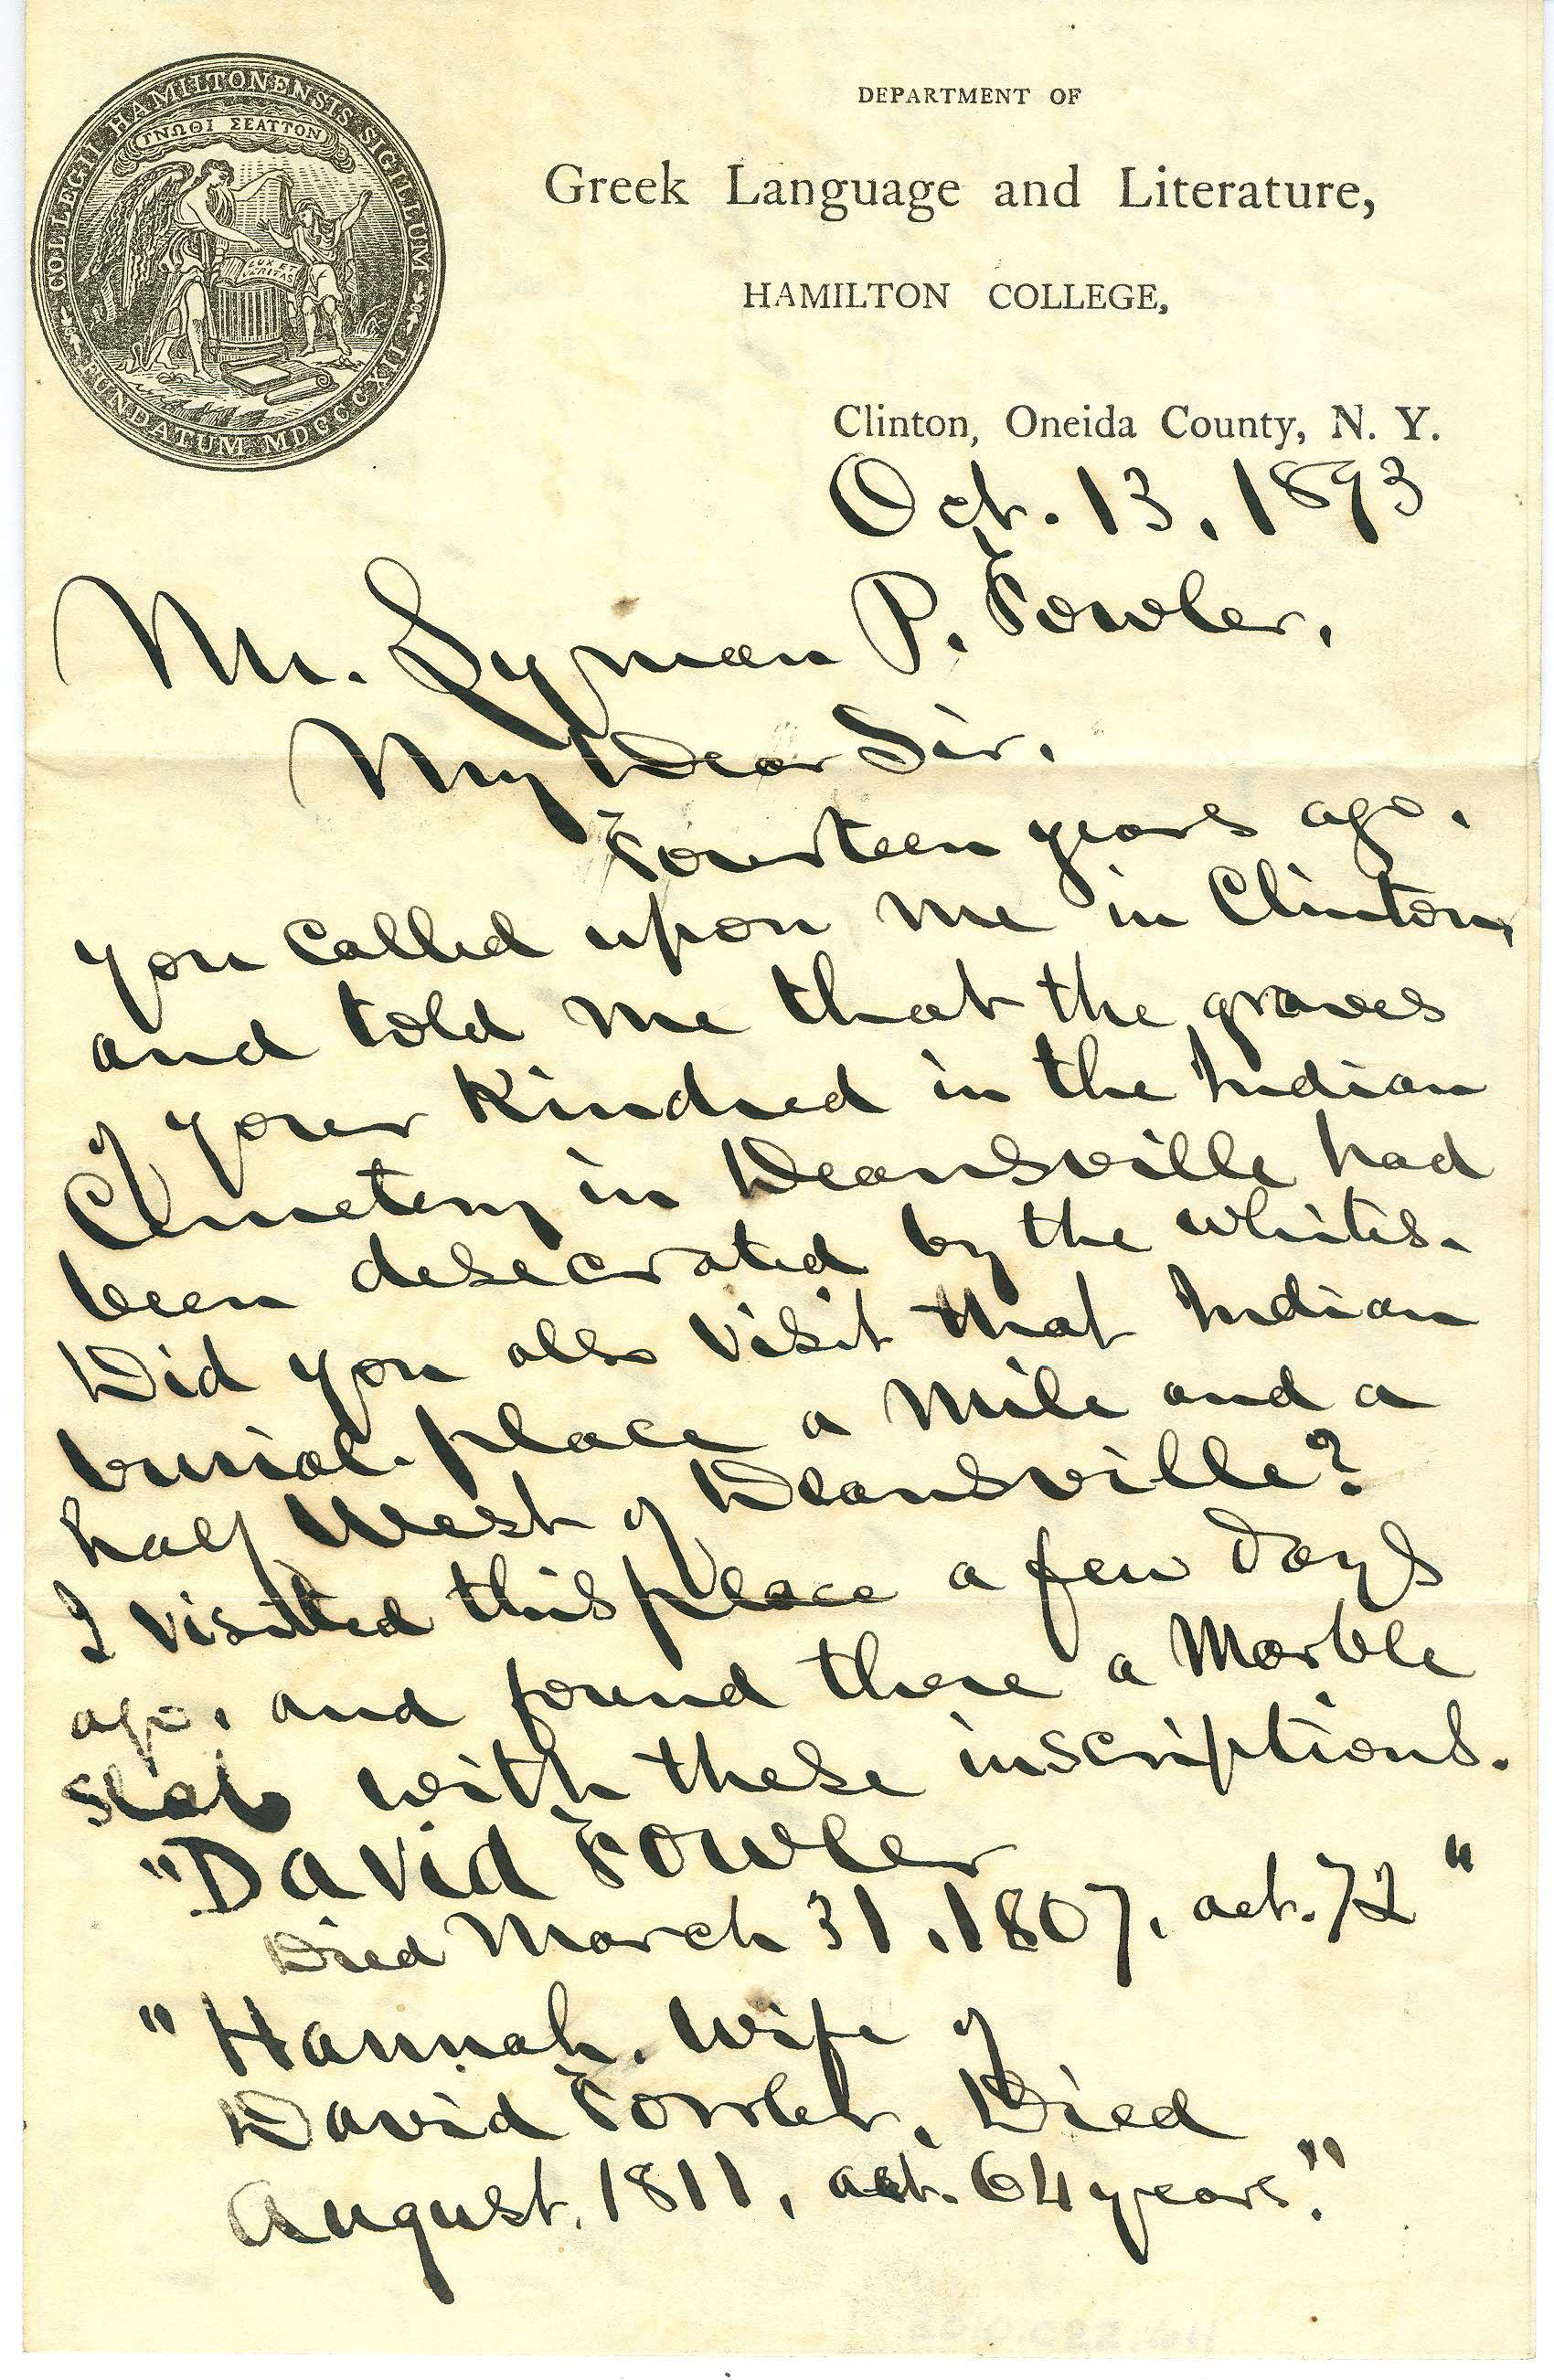 COLLEGII HAMILTONENSIS SIGILLUM
FUNDATUM MDCCCXII
ΓΝΩΘΙ ΣΕΑΤΤΟΝ
LUX ET
VERITAS
DEPARTMENT OF
Greek Language and Literature,
HAMILTON COLLEGE,
Clinton, Oneida County, N. Y.
Oct. 13, 1893
Mr. Lyman P. Fowler,
My Dear Sir,
Fourteen years ago,
you called upon me in Clinton,
and told me that the graves
of your Kindred in the Indian
Cemetery in Deansville had
been desecrated by the whites.
Did you also visit that Indian
burial-place a mile and a
half West of Deansville?
I visited this place a few days
ago, and found there a Marble
slab with these inscriptions.
"David Fowler
Died March 31, 1807, aet. 72"
"Hannah, Wife of
David Fowler, Died
August, 1811, aet. 64 years."